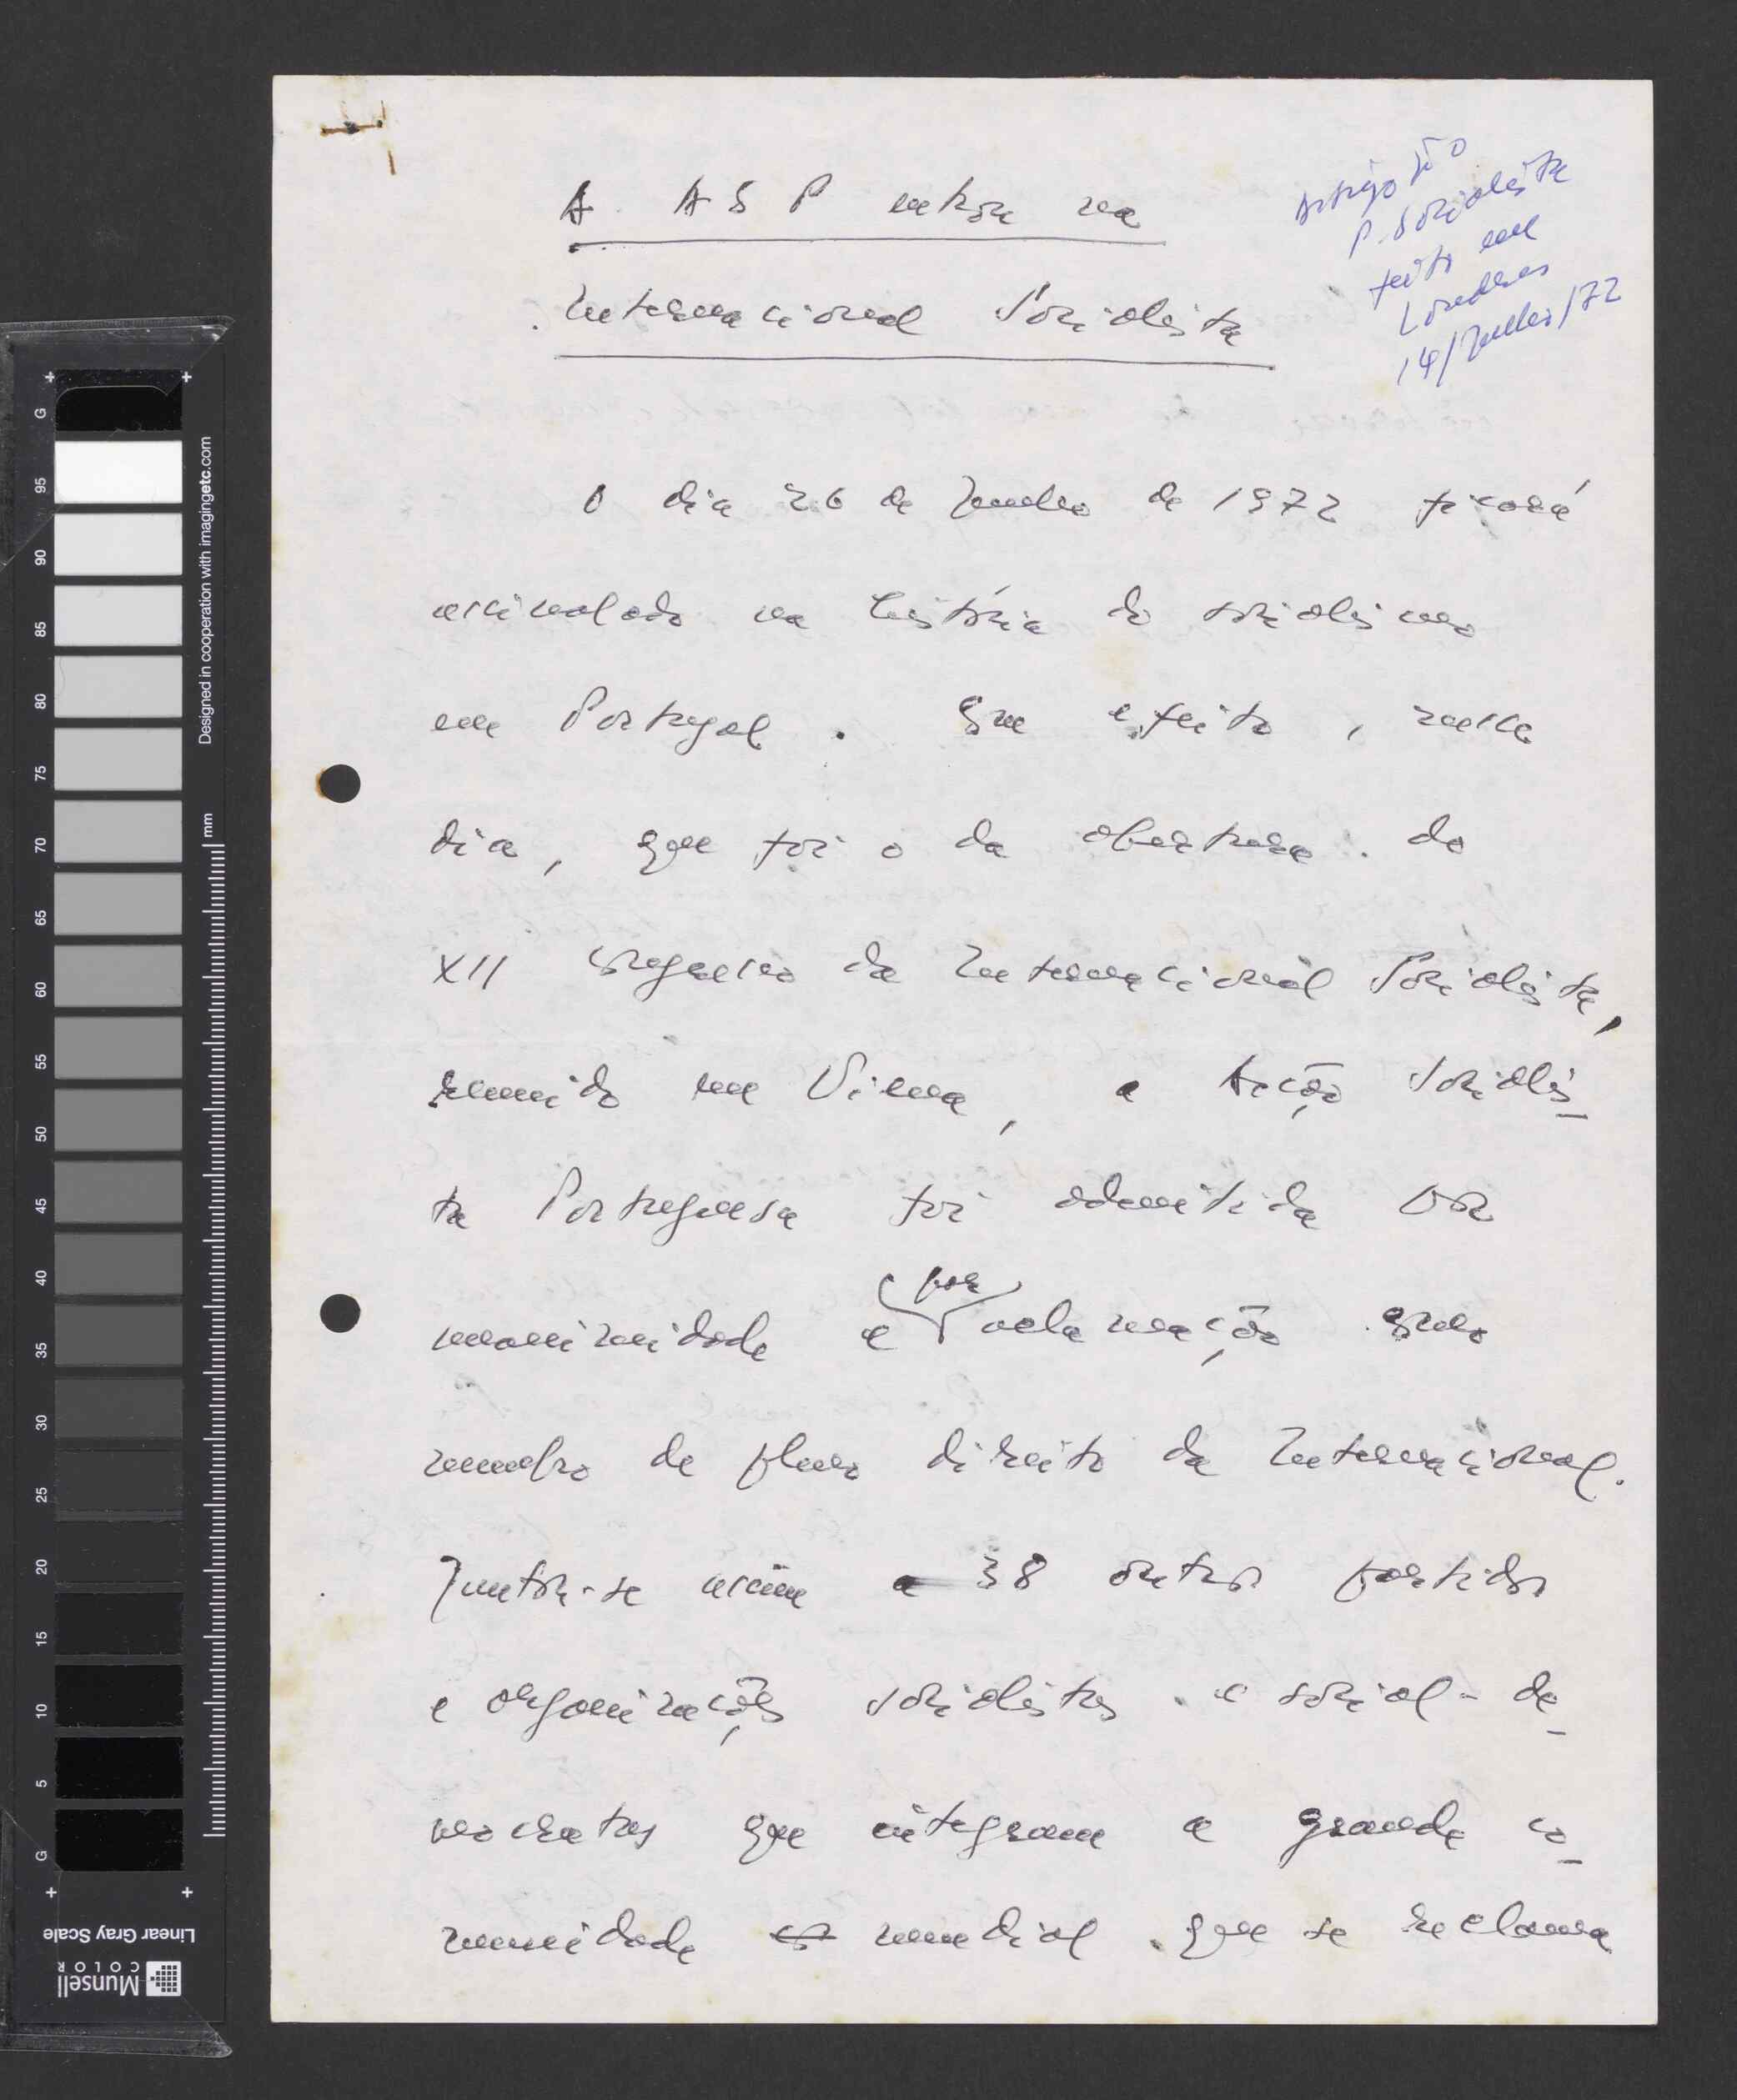 A ASP entra na
Internacional Socialista
Artigo p.ª o
P. Socialista
feito em
Londres
14/Julho/72
O dia 26 de Junho de 1972 ficará
assinalado na história do socialismo
em Portugal. Em efeito, nesse
dia, que foi o da abertura do
XII Congresso da Internacional Socialista,
reunido em Viena, a Acção Socialis-
ta Portuguesa foi admitida por
unanimidade e por aclamação como
membro de pleno direito da Internacional.
Juntou-se assim a 38 outros partidos
e organizações socialistas e social-de-
mocratas que integram a grande co-
munidade mundial que se reclama
Designed in cooperation with imagingetc.com
mm
G 95 90 85 80 75 70 65 60 55 50 45 40 35 30 25 20 15 10 5 G
Linear Gray Scale
Munsell
COLOR